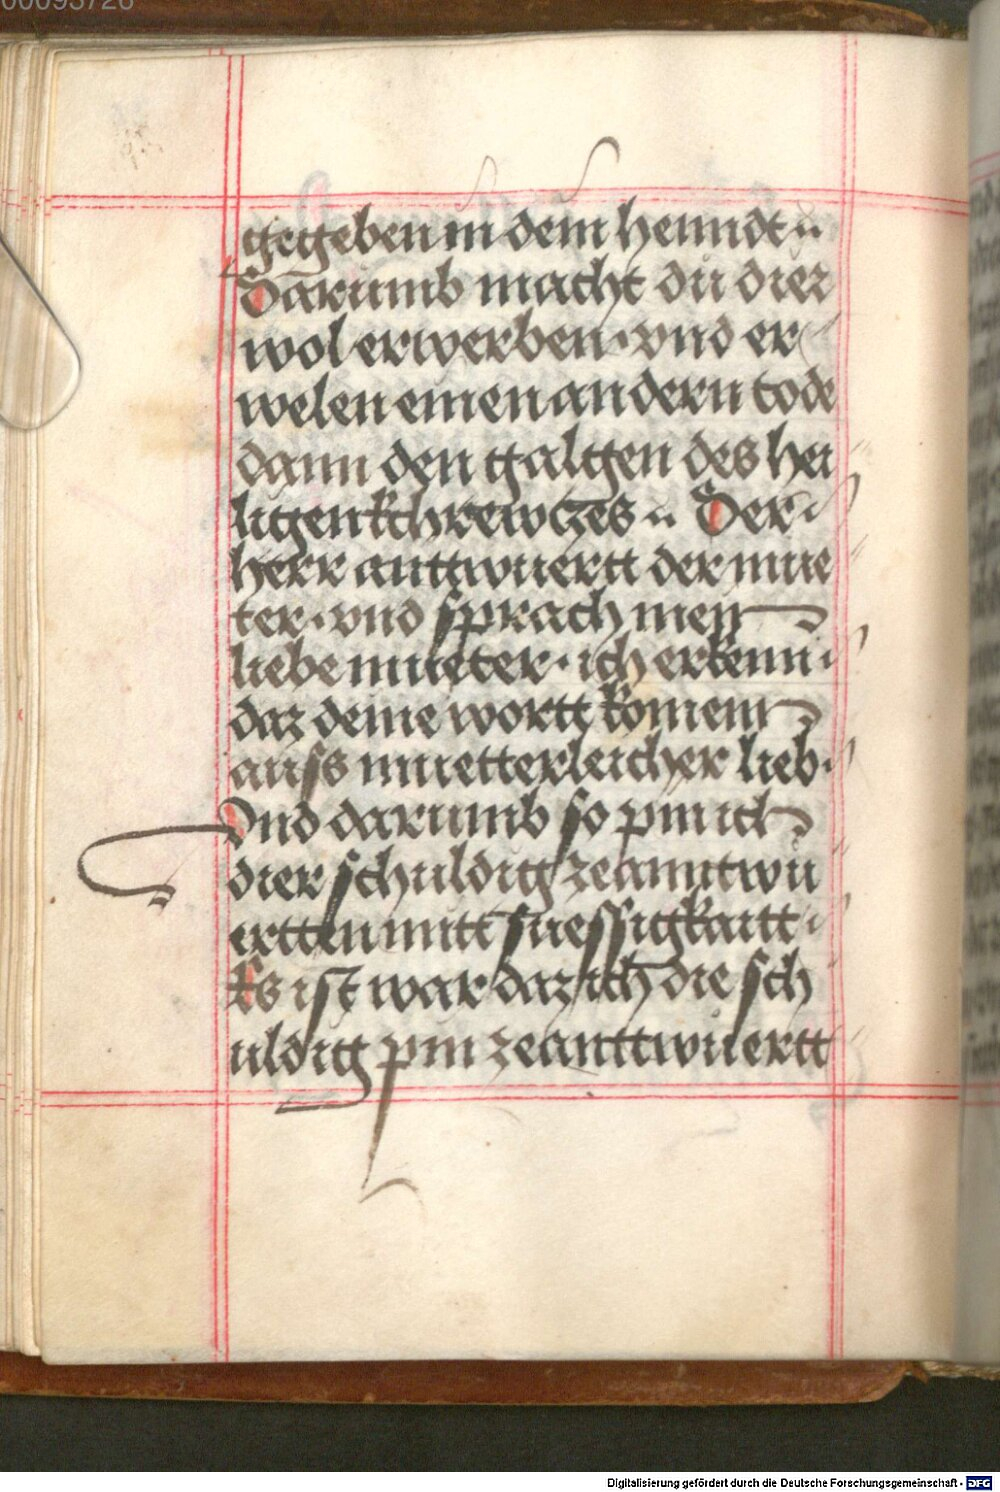 00095726
gegeben in dein henndt ..
Darumb macht du dier
wol erwerben · vnd er
welen einen andern tode
dann den galgen des hei
ligen kchrewczes .. Der
herr anttwuertt der mue
ter · vnd sprach mein
liebe mueter · ich erkenn
daz deine wortt komem
auss muetterleicher lieb ·
Vnd darumb so pin ich
dier schuldig zeanntwu
ertten mitt suessigkaitt
Es ist war daz ich die sch
uldig pin zeanttwuertt
Digitalisierung gefördert durch die Deutsche Forschungsgemeinschaft - DFG